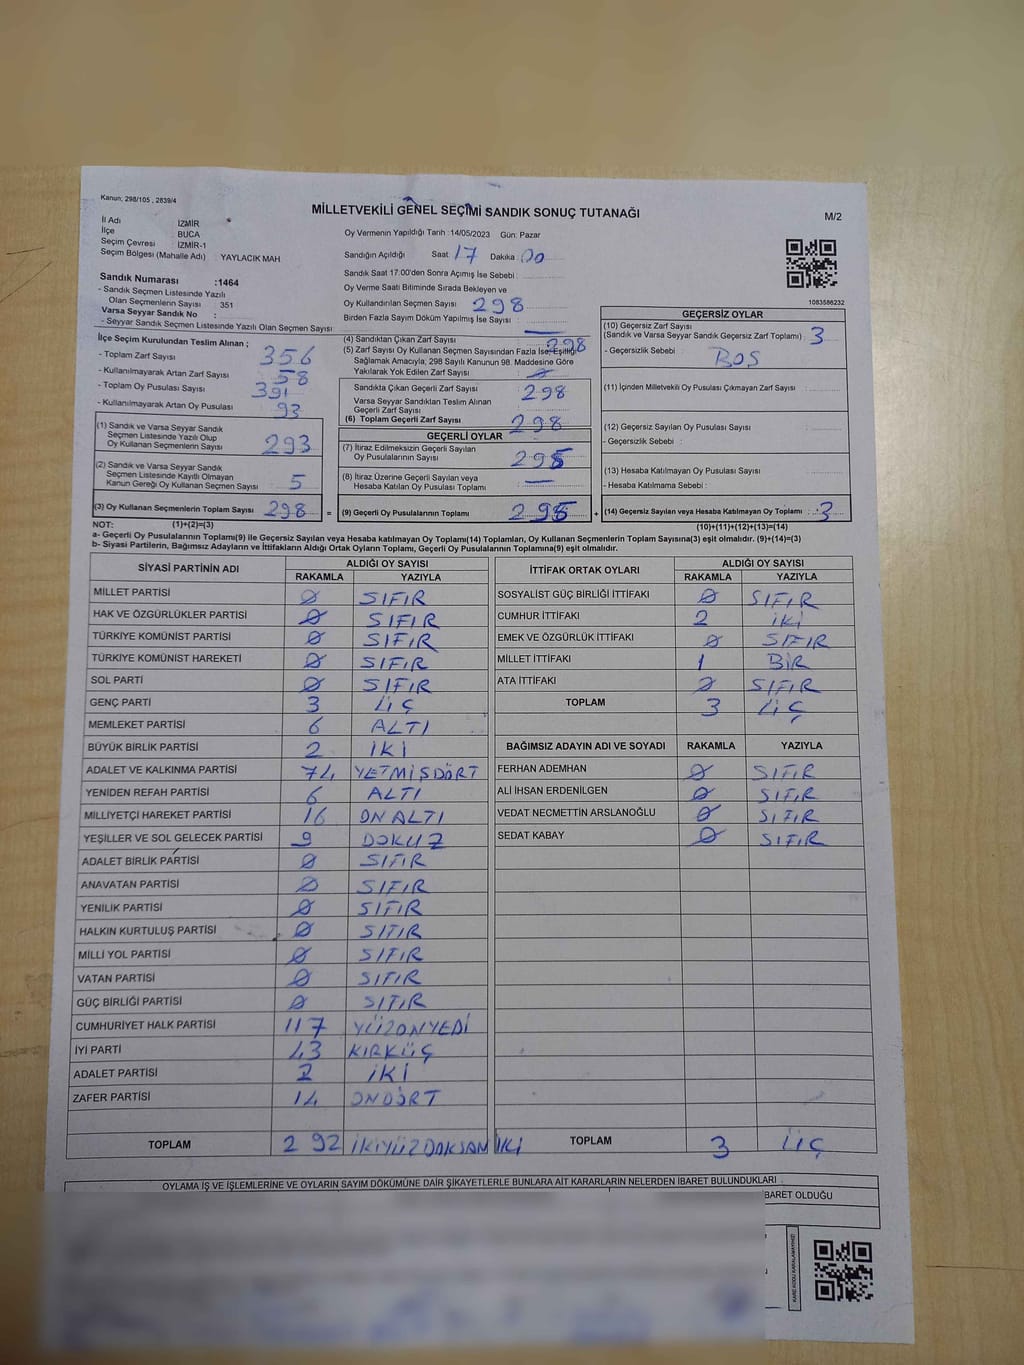 Kanun; 298/105 , 2839/4
MİLLETVEKİLİ GENEL SEÇİMİ SANDIK SONUÇ TUTANAĞI
M/2
İl Adı İZMİR
İlçe BUCA
Seçim Çevresi : İZMİR-1
Seçim Bölgesi (Mahalle Adı) YAYLACIK MAH
Sandık Numarası :1464
- Sandık Seçmen Listesinde Yazılı
Olan Seçmenlerin Sayısı : 351
Varsa Seyyar Sandık No :
- Seyyar Sandık Seçmen Listesinde Yazılı Olan Seçmen Sayısı
Oy Vermenin Yapıldığı Tarih :14/05/2023 Gün: Pazar
Sandığın Açıldığı Saat 17 Dakika : 00
Sandık Saat 17.00'den Sonra Açımış İse Sebebi :
Oy Verme Saati Bitiminde Sırada Bekleyen ve
Oy Kullandırılan Seçmen Sayısı 298
Birden Fazla Sayım Döküm Yapılmış İse Sayısı : —
1083586232
İlçe Seçim Kurulundan Teslim Alınan ;
- Toplam Zarf Sayısı 356
- Kullanılmayarak Artan Zarf Sayısı : 58
- Toplam Oy Pusulası Sayısı 391
- Kullanılmayarak Artan Oy Pusulası 93
(1) Sandık ve Varsa Seyyar Sandık
Seçmen Listesinde Yazılı Olup
Oy Kullanan Seçmenlerin Sayısı 293
(2) Sandık ve Varsa Seyyar Sandık
Seçmen Listesinde Kayıtlı Olmayan
Kanun Gereği Oy Kullanan Seçmen Sayısı : 5
(3) Oy Kullanan Seçmenlerin Toplam Sayısı : 298 =
(4) Sandıktan Çıkan Zarf Sayısı : 298
(5) Zarf Sayısı Oy Kullanan Seçmen Sayısından Fazla İse, Eşitliği
Sağlamak Amacıyla, 298 Sayılı Kanunun 98. Maddesine Göre
Yakılarak Yok Edilen Zarf Sayısı :
Sandıkta Çıkan Geçerli Zarf Sayısı 298
Varsa Seyyar Sandıktan Teslim Alınan
Geçerli Zarf Sayısı
(6) Toplam Geçerli Zarf Sayısı 298
GEÇERLİ OYLAR
(7) İtiraz Edilmeksizin Geçerli Sayılan
Oy Pusulalarının Sayısı 295
(8) İtiraz Üzerine Geçerli Sayılan veya
Hesaba Katılan Oy Pusulası Toplamı : —
(9) Geçerli Oy Pusulalarının Toplamı 295 +
GEÇERSİZ OYLAR
(10) Geçersiz Zarf Sayısı
(Sandık ve Varsa Seyyar Sandık Geçersiz Zarf Toplamı) 3
- Geçersizlik Sebebi : BOŞ
(11) İçinden Milletvekili Oy Pusulası Çıkmayan Zarf Sayısı :
(12) Geçersiz Sayılan Oy Pusulası Sayısı
- Geçersizlik Sebebi :
(13) Hesaba Katılmayan Oy Pusulası Sayısı
- Hesaba Katılmama Sebebi :
(14) Geçersiz Sayılan veya Hesaba Katılmayan Oy Toplamı : 3
NOT: (1)+(2)=(3)
(10)+(11)+(12)+(13)=(14)
a- Geçerli Oy Pusulalarının Toplamı(9) ile Geçersiz Sayılan veya Hesaba katılmayan Oy Toplamı(14) Toplamları, Oy Kullanan Seçmenlerin Toplam Sayısına(3) eşit olmalıdır. (9)+(14)=(3)
b- Siyasi Partilerin, Bağımsız Adayların ve İttifakların Aldığı Ortak Oyların Toplamı, Geçerli Oy Pusulalarının Toplamına(9) eşit olmalıdır.
SİYASİ PARTİNİN ADI ALDIĞI OY SAYISI
RAKAMLA YAZIYLA
MİLLET PARTİSİ 0 SIFIR
HAK VE ÖZGÜRLÜKLER PARTİSİ 0 SIFIR
TÜRKİYE KOMÜNİST PARTİSİ 0 SIFIR
TÜRKİYE KOMÜNİST HAREKETİ 0 SIFIR
SOL PARTİ 0 SIFIR
GENÇ PARTİ 3 ÜÇ
MEMLEKET PARTİSİ 6 ALTI
BÜYÜK BİRLİK PARTİSİ 2 İKİ
ADALET VE KALKINMA PARTİSİ 74 YETMİŞDÖRT
YENİDEN REFAH PARTİSİ 6 ALTI
MİLLİYETÇİ HAREKET PARTİSİ 16 ONALTI
YEŞİLLER VE SOL GELECEK PARTİSİ 9 DOKUZ
ADALET BİRLİK PARTİSİ 0 SIFIR
ANAVATAN PARTİSİ 0 SIFIR
YENİLİK PARTİSİ 0 SIFIR
HALKIN KURTULUŞ PARTİSİ 0 SIFIR
MİLLİ YOL PARTİSİ 0 SIFIR
VATAN PARTİSİ 0 SIFIR
GÜÇ BİRLİĞİ PARTİSİ 0 SIFIR
CUMHURİYET HALK PARTİSİ 117 YÜZONYEDİ
İYİ PARTİ 43 KIRKÜÇ
ADALET PARTİSİ 2 İKİ
ZAFER PARTİSİ 14 ONDÖRT
TOPLAM 292 İKİYÜZDOKSAN İKİ
İTTİFAK ORTAK OYLARI ALDIĞI OY SAYISI
RAKAMLA YAZIYLA
SOSYALİST GÜÇ BİRLİĞİ İTTİFAKI 0 SIFIR
CUMHUR İTTİFAKI 2 İKİ
EMEK VE ÖZGÜRLÜK İTTİFAKI 0 SIFIR
MİLLET İTTİFAKI 1 BİR
ATA İTTİFAKI 0 SIFIR
TOPLAM 3 ÜÇ
BAĞIMSIZ ADAYIN ADI VE SOYADI RAKAMLA YAZIYLA
FERHAN ADEMHAN 0 SIFIR
ALİ İHSAN ERDENİLGEN 0 SIFIR
VEDAT NECMETTİN ARSLANOĞLU 0 SIFIR
SEDAT KABAY 0 SIFIR
TOPLAM 3 ÜÇ
OYLAMA İŞ VE İŞLEMLERİNE VE OYLARIN SAYIM DÖKÜMÜNE DAİR ŞİKAYETLERLE BUNLARA AİT KARARLARIN NELERDEN İBARET BULUNDUKLARI
İBARET OLDUĞU
KARE KODU KARALAMAYINIZ!